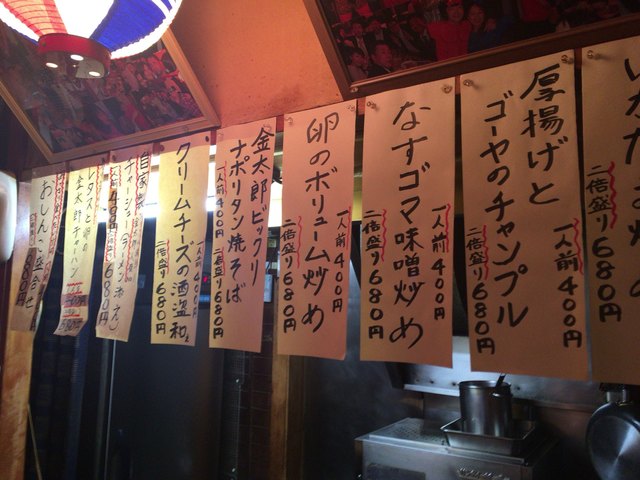 厚揚げと
ゴーヤのチャンプル
一人前400円
二倍盛り680円
なすゴマ味噌炒め
一人前400円
二倍盛り680円
卵のボリューム炒め
一人前400円
二倍盛り680円
金太郎ビックリ
ナポリタン焼そば
一人前400円
二倍盛り680円
クリームチーズの酒盗和え
二倍盛り680円
自家製
チャーシュー
400円
680円
レタスと卵の
金太郎チャーハン
おしんこ盛合せ
二倍盛り680円